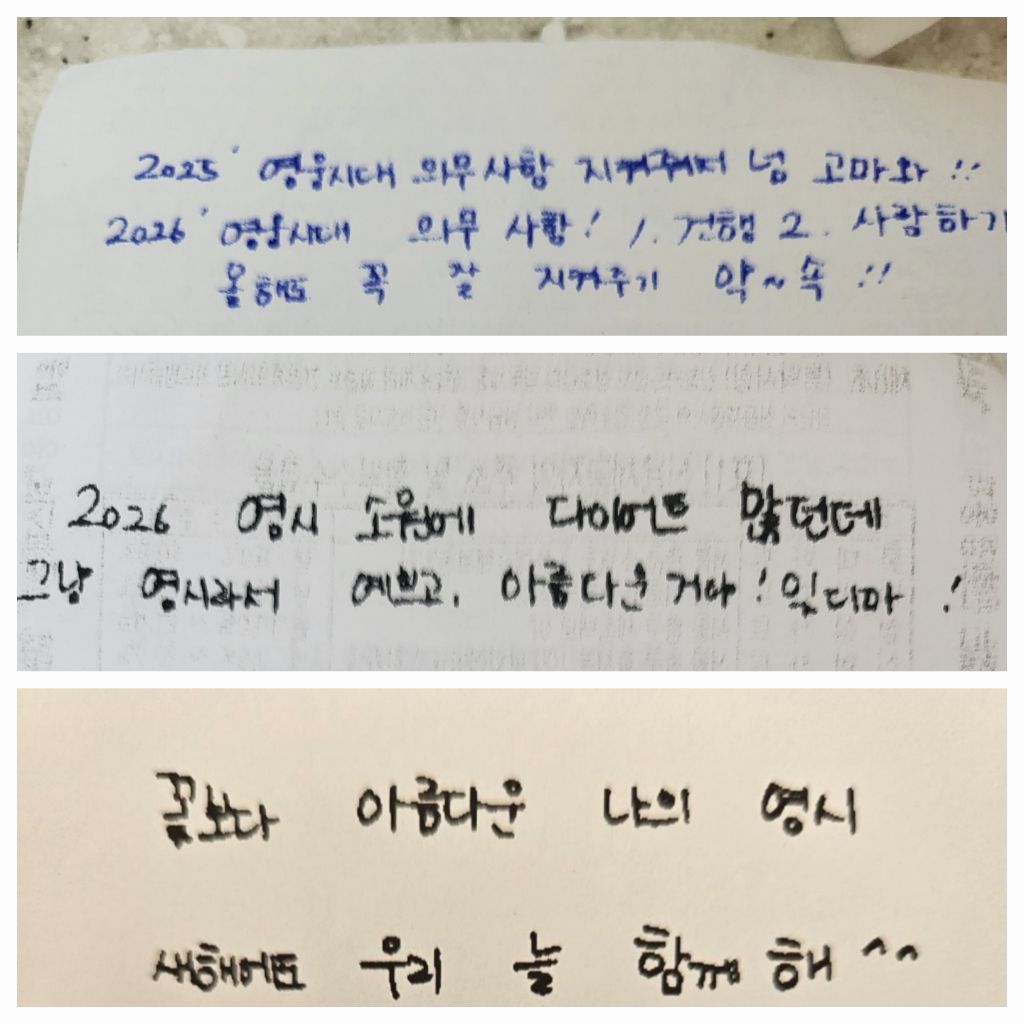 2025' 영웅시대 의무사항 지켜줘서 넘 고마와!!
2026' 영웅시대 의무 사항! 1. 건행 2. 사랑하기
올해도 꼭 잘 지켜주기 약~속!!
2026 영시 소원에 다이어트 많던데
그냥 영시라서 예쁘고, 아름다운 거야! 잊디마!
꽃보다 아름다운 나의 영시
새해에도 우리 늘 함께 해^^